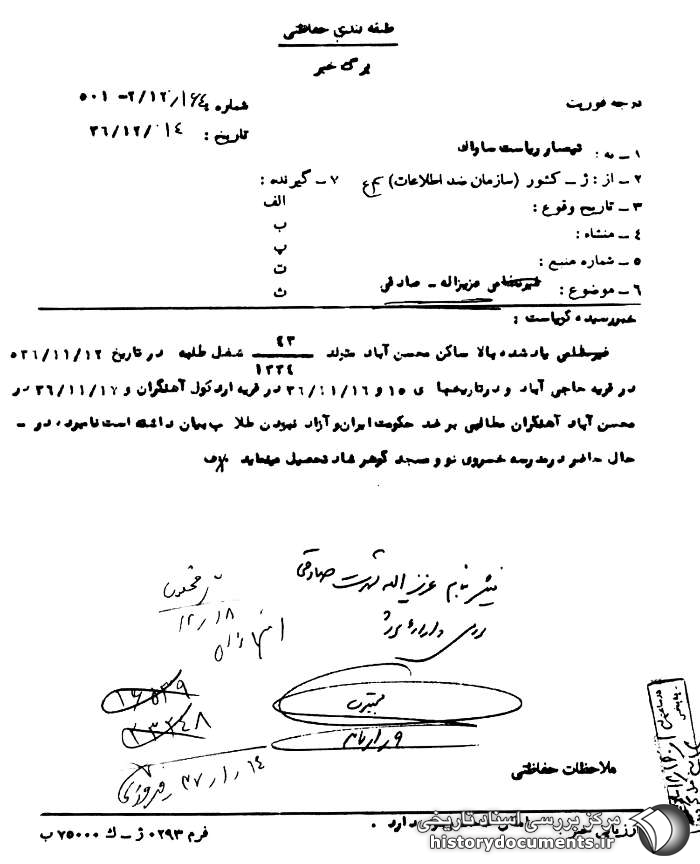 طبقه بندی حفاظتی
برگ خبر
درجه فوریت
شماره : ۵۰۱ -۲/۱۲/۱۶۴
تاریخ : ۳۶/۱۲/۰۱۴
۱ ـ به : تیمسار ریاست ساواک
۲ ـ از : ژ ـ کشور (سازمان ضد اطلاعات)
۷ ـ گیرنده :
الف
۳ ـ تاریخ وقوع :
ب
۴ ـ منشاء :
پ
۵ ـ شماره منبع :
ت
۶ ـ موضوع : غیرنظامی عزیزاله ـ صادقی
ث
خبر رسیده گویاست :
غیرنظامی یاد شده بالا ساکن محسن آباد متولد ۴۳/۱۳۳۴ شغل طلبه در تاریخ ۵۳۶/۱۱/۱۲
در قریه حاجی آباد و در تاریخهای ۱۵ و ۳۶/۱۱/۱۶ در قریه اردکول آهنگران و ۳۶/۱۱/۱۷ در
محسن آباد آهنگران مطالبی بر ضد حکومت ایران و آزاد نمودن طلاب بیان داشته است نامبرده در ـ
حال حاضر در مدرسه خسروی نو و مسجد گوهر شاد تحصیل مینماید
بنام عزیز اله شهرت صادقی
۱۲/۱۸
۱۶۵۳۹
۲۳۲۴۸
۳۷/۱/۱۴
ملاحظات حفاظتی
ارزیابی خبر
دارد .
فرم ۰۲۹۳ ژ ـ ک ۷۵۰۰۰ ب
مرکز بررسی اسناد تاریخی
historydocuments.ir